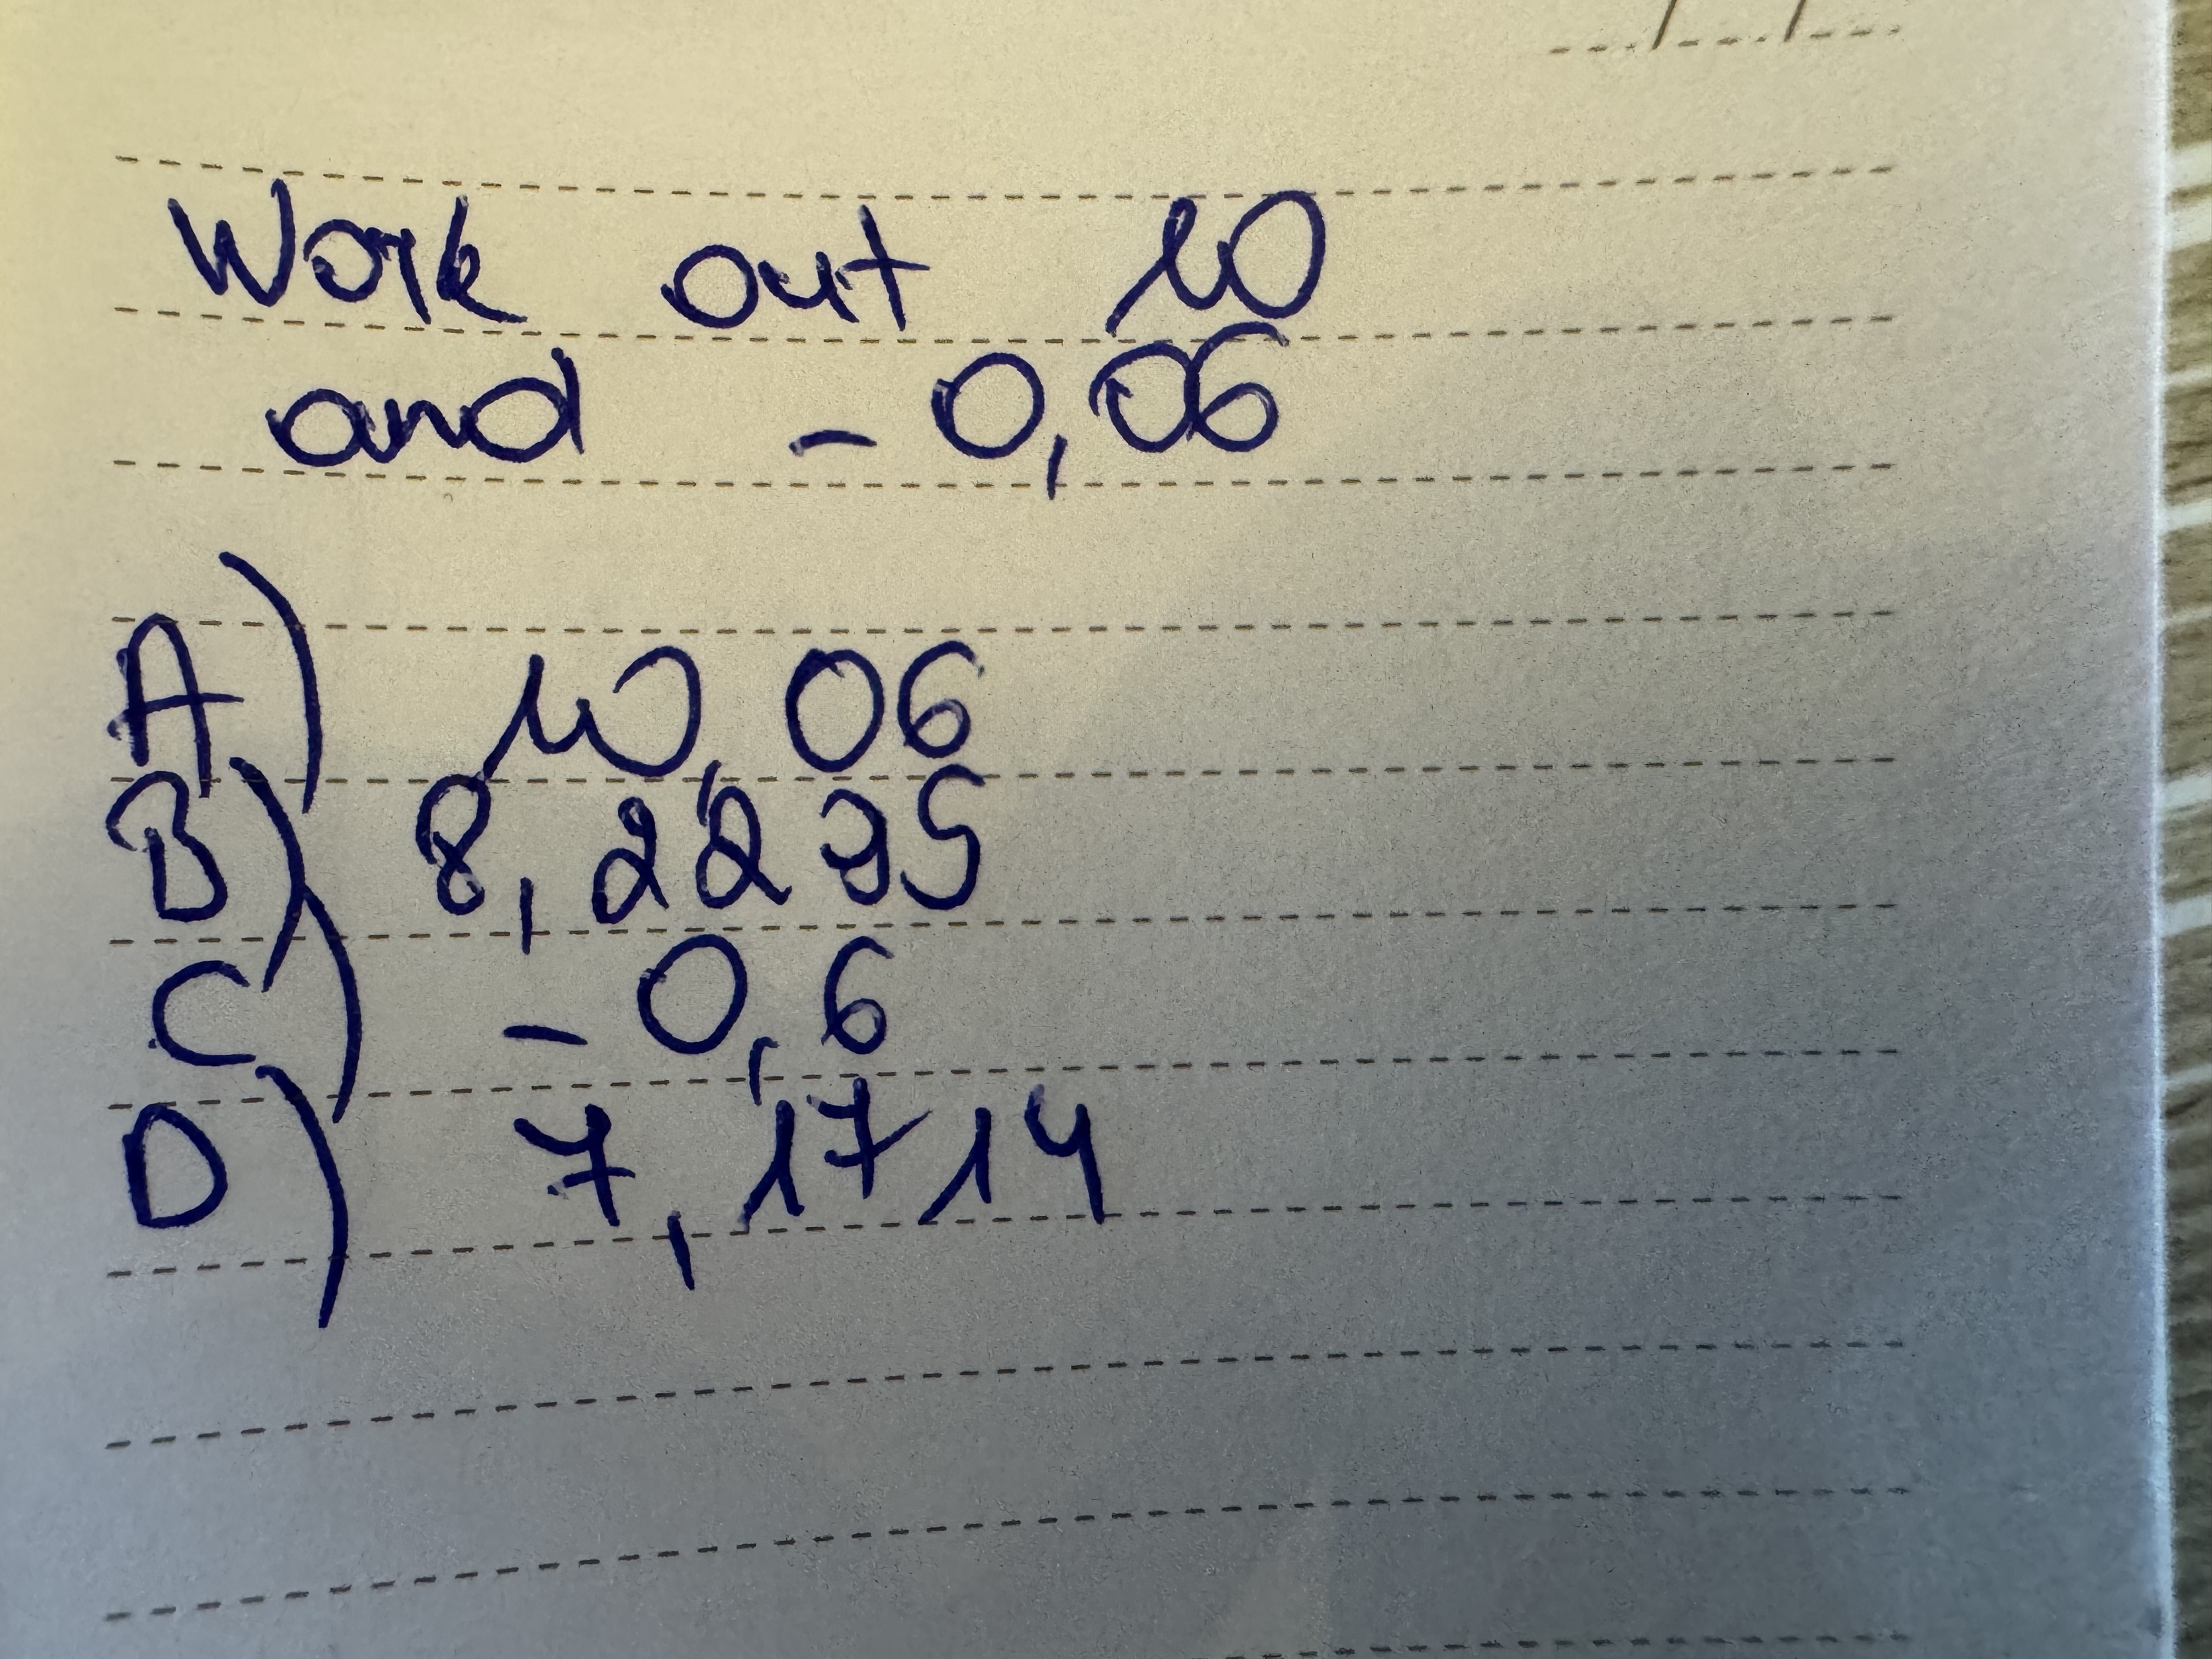 Work out 10
and - 0,06
A) 10,06
B) 8,2235
C) - 0,6
D) 7,1714